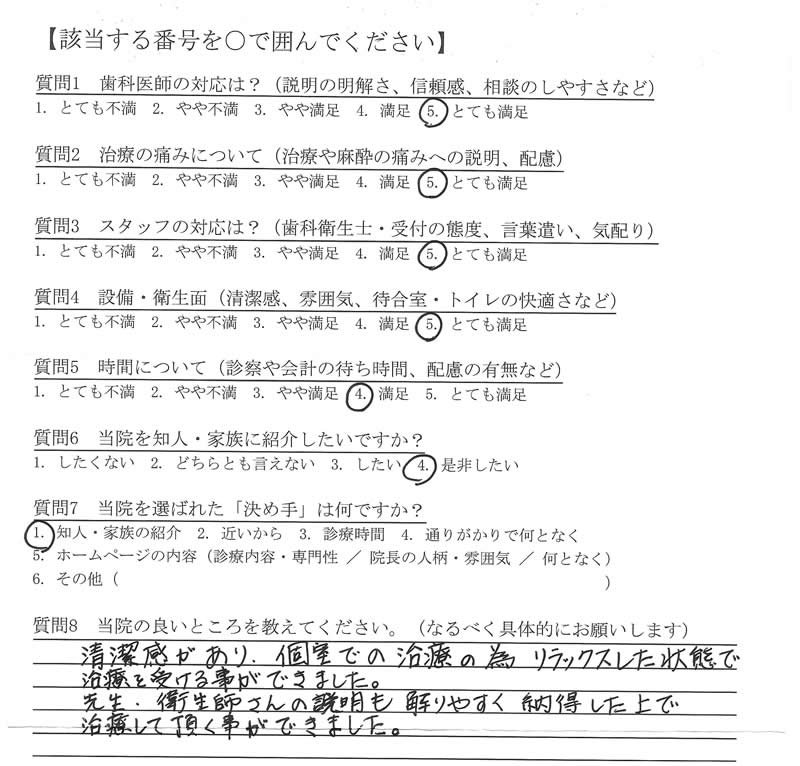 【該当する番号を○で囲んでください】
質問1　歯科医師の対応は？（説明の明解さ、信頼感、相談のしやすさなど）
1. とても不満　2. やや不満　3. やや満足　4. 満足　5. とても満足
質問2　治療の痛みについて（治療や麻酔の痛みへの説明、配慮）
1. とても不満　2. やや不満　3. やや満足　4. 満足　5. とても満足
質問3　スタッフの対応は？（歯科衛生士・受付の態度、言葉遣い、気配り）
1. とても不満　2. やや不満　3. やや満足　4. 満足　5. とても満足
質問4　設備・衛生面（清潔感、雰囲気、待合室・トイレの快適さなど）
1. とても不満　2. やや不満　3. やや満足　4. 満足　5. とても満足
質問5　時間について（診察や会計の待ち時間、配慮の有無など）
1. とても不満　2. やや不満　3. やや満足　4. 満足　5. とても満足
質問6　当院を知人・家族に紹介したいですか？
1. したくない　2. どちらとも言えない　3. したい　4. 是非したい
質問7　当院を選ばれた「決め手」は何ですか？
1. 知人・家族の紹介　2. 近いから　3. 診療時間　4. 通りがかりで何となく
5. ホームページの内容（診療内容・専門性 ／ 院長の人柄・雰囲気 ／ 何となく）
6. その他（　　　　　　　　　　）
質問8　当院の良いところを教えてください。（なるべく具体的にお願いします）
清潔感があり、個室での治療の為リラックスした状態で
治療を受ける事ができました。
先生、衛生師さんの説明も解りやすく納得した上で
治療して頂く事ができました。